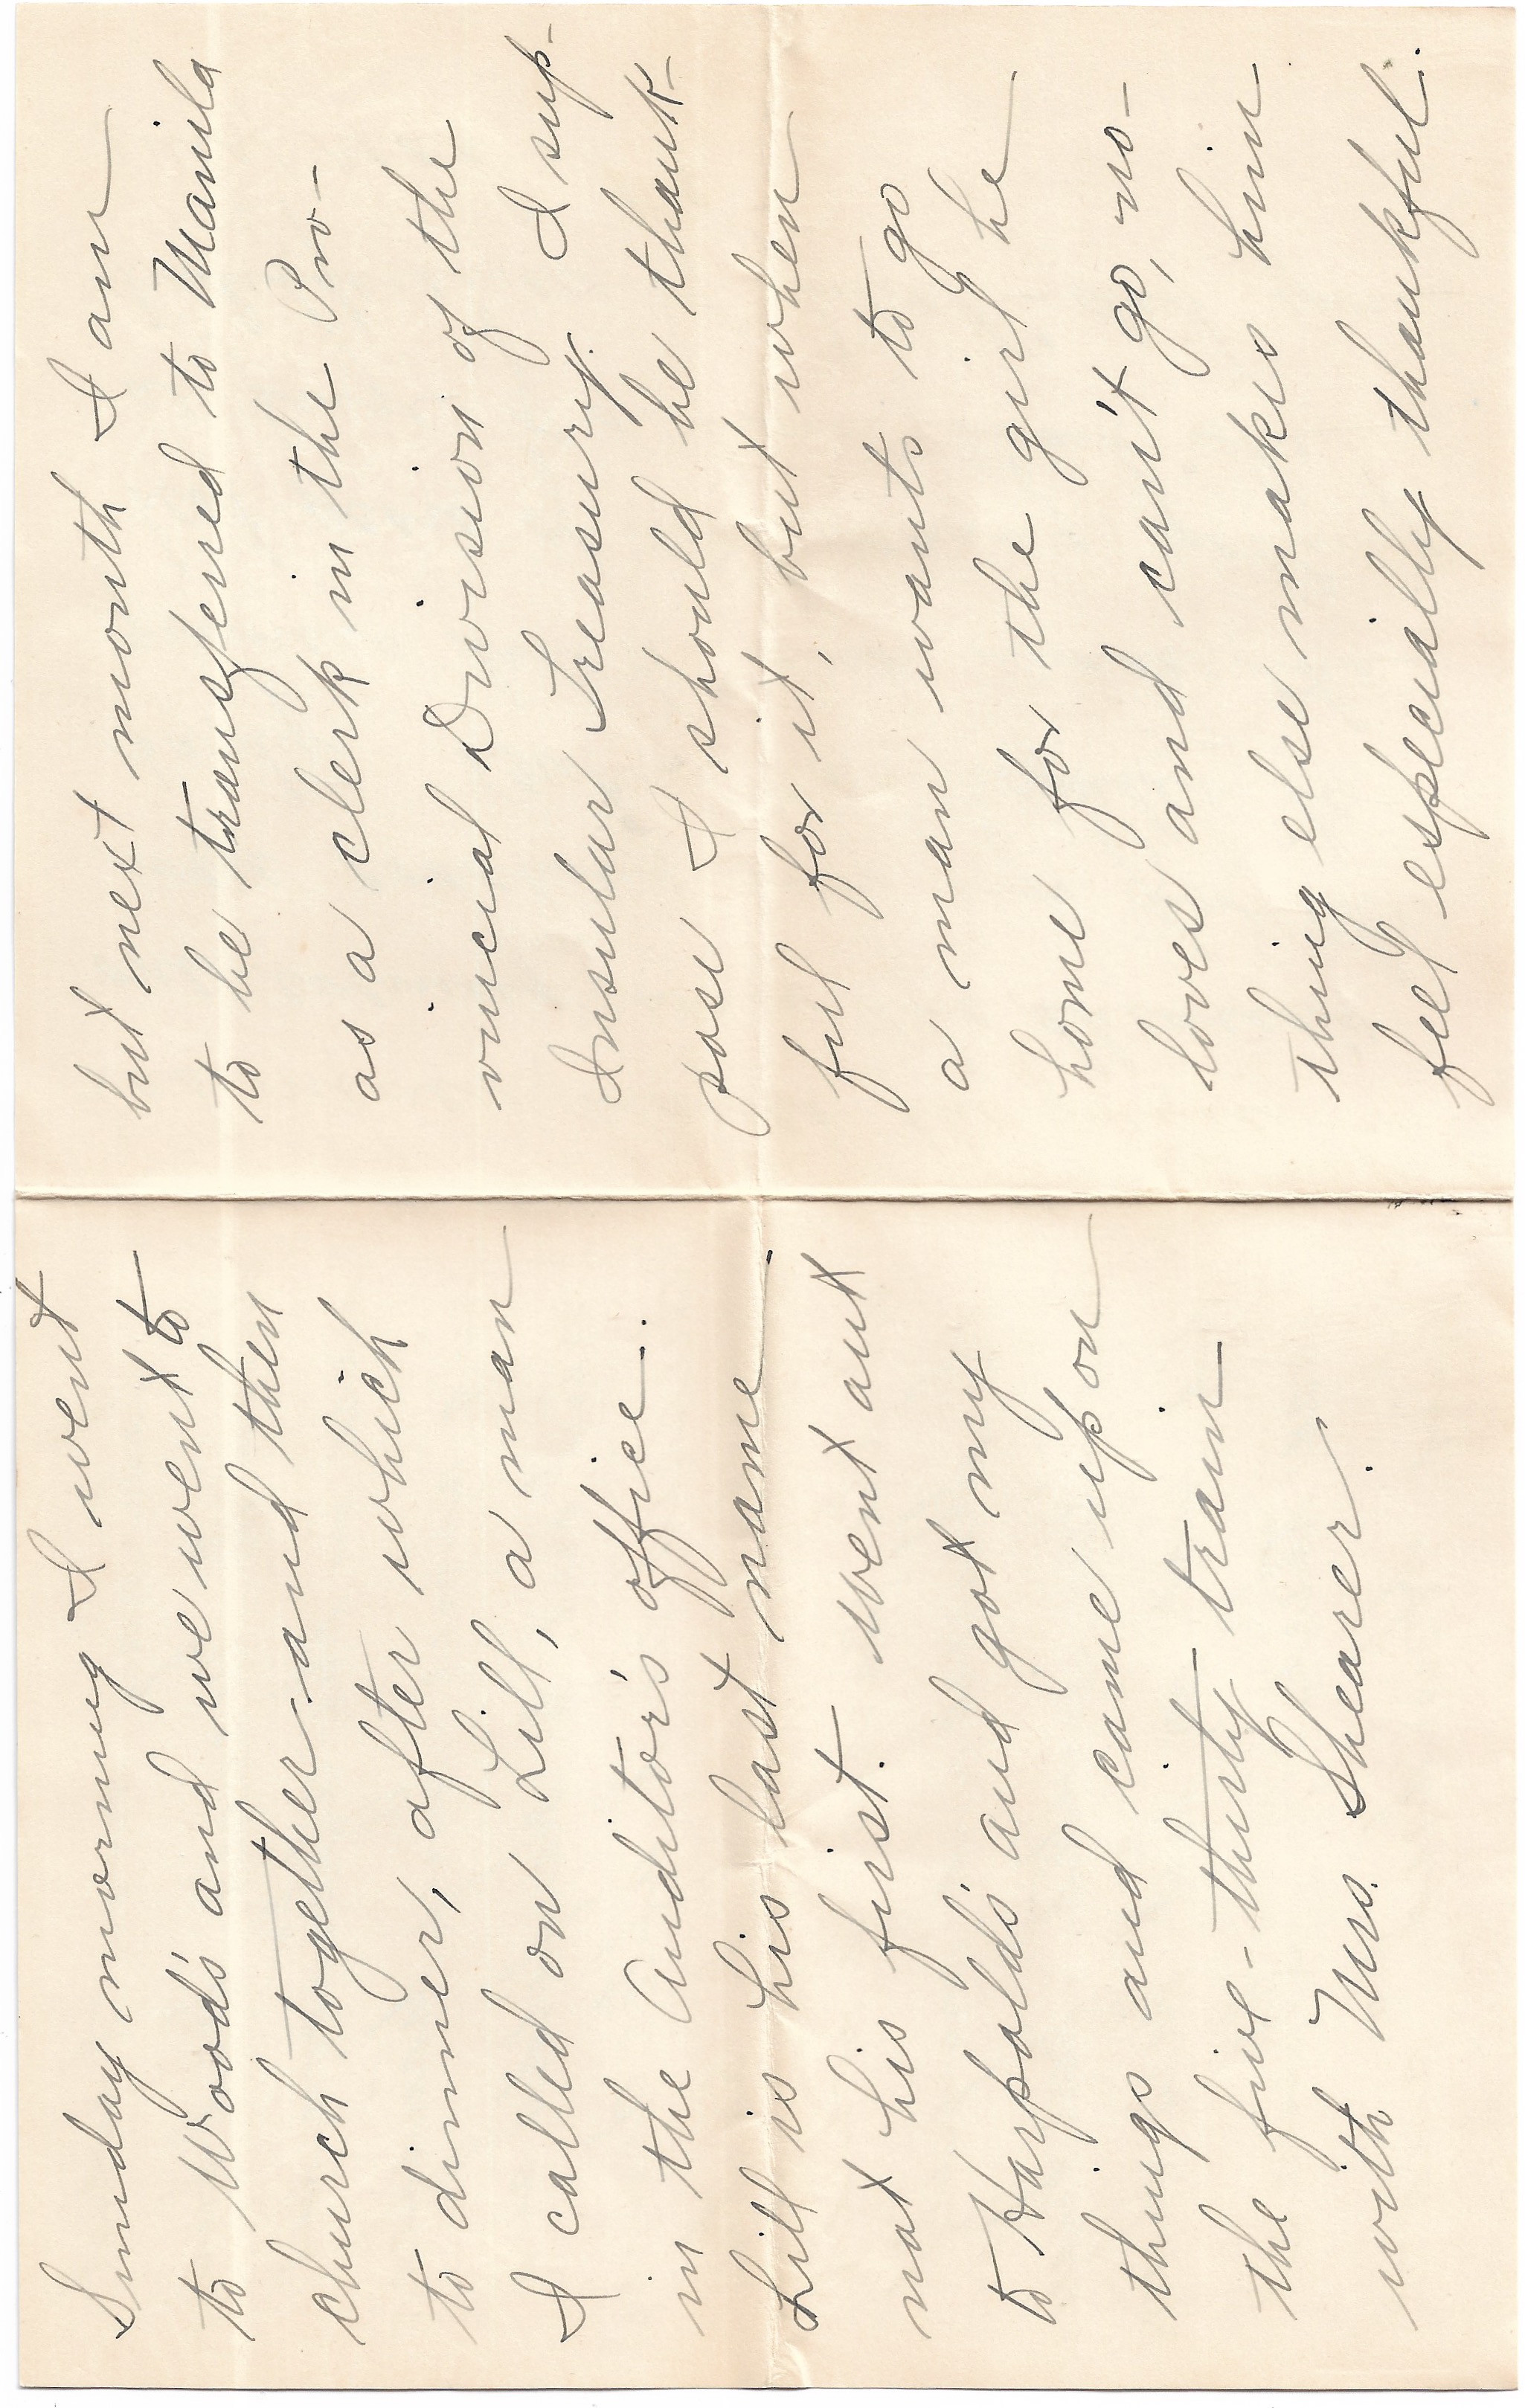 Sunday morning I went
to Wood's and we went to
church together and then
to dinner, after which
I called on Lill, a man
in the Auditor's office.
Lill is his last name
not his first. Went out
to Harpold's and got my
things and came up on
the five-thirty train
with Mrs. Shearer.
but next month I am
to be transfered to Manila
as a clerk in the Pro-
vincial Division of the
Insular Treasury. I sup-
pose I should be thank-
ful for it, but when
a man wants to go
home for the girl he
loves and can't go, no-
thing else makes him
feel especially thankful.